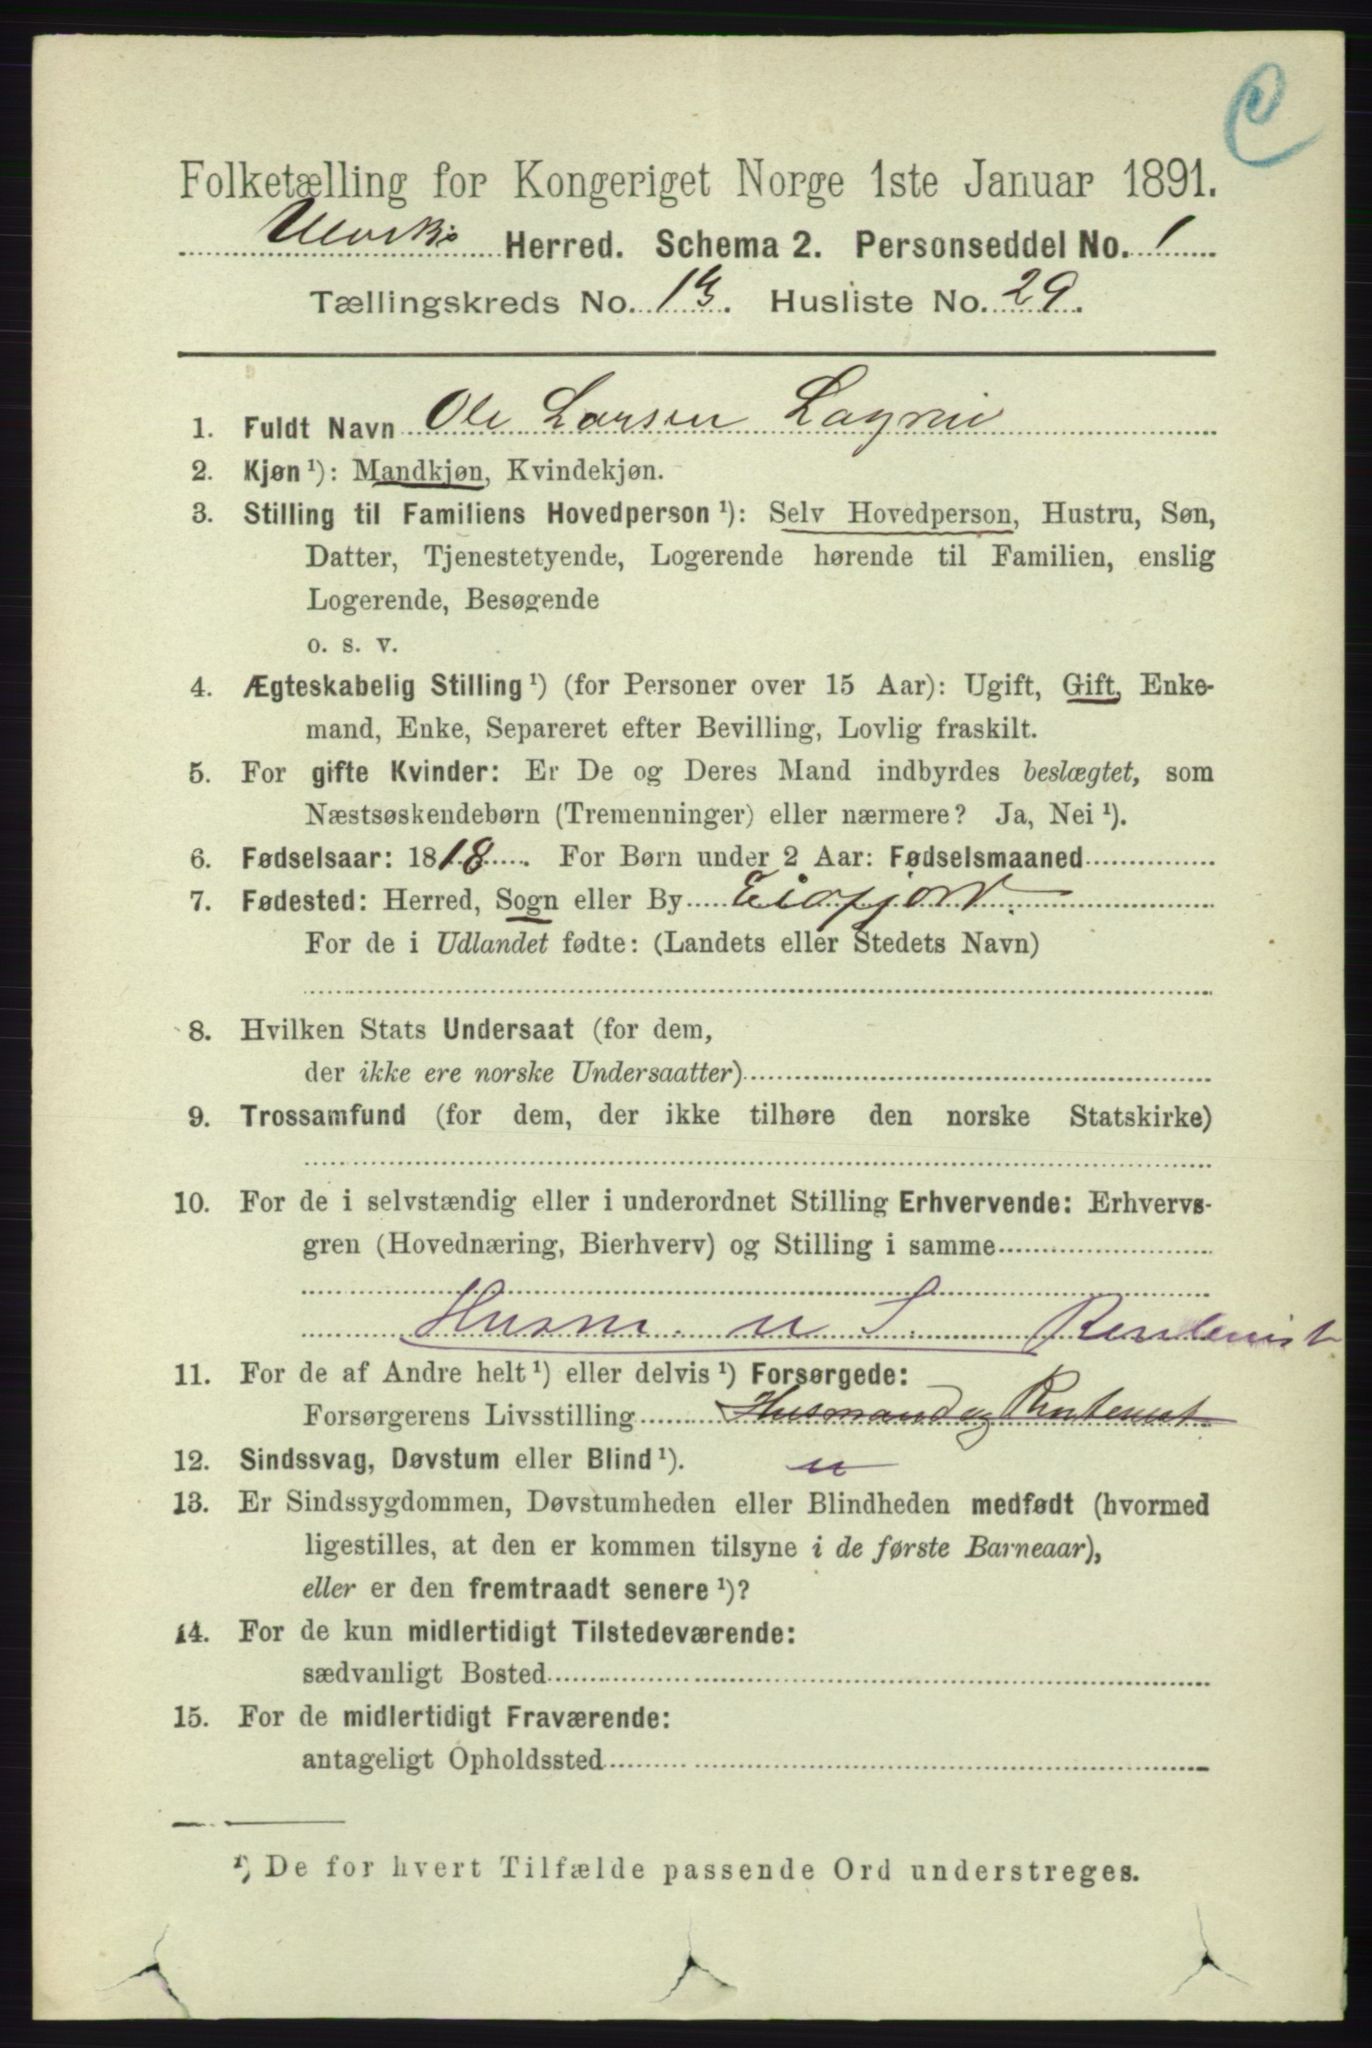 C
Folketælling for Kongeriget Norge 1ste Januar 1891.
Herred. Schema 2. Personseddel No. 1
Tællingskreds No. 13. Husliste No. 29.
1. Fuldt Navn Ole Larsen
2. Kjøn ¹): Mandkjøn, Kvindekjøn.
3. Stilling til Familiens Hovedperson ¹): Selv Hovedperson, Hustru, Søn,
Datter, Tjenestetyende, Logerende hørende til Familien, enslig
Logerende, Besøgende
o. s. v.
4. Ægteskabelig Stilling ¹) (for Personer over 15 Aar): Ugift, Gift, Enke-
mand, Enke, Separeret efter Bevilling, Lovlig fraskilt.
5. For gifte Kvinder: Er De og Deres Mand indbyrdes beslægtet, som
Næstsøskendebørn (Tremenninger) eller nærmere? Ja, Nei ¹).
6. Fødselsaar: 1818. For Børn under 2 Aar: Fødselsmaaned
7. Fødested: Herred, Sogn eller By Eidfjord.
For de i Udlandet fødte: (Landets eller Stedets Navn)
8. Hvilken Stats Undersaat (for dem,
der ikke ere norske Undersaatter)
9. Trossamfund (for dem, der ikke tilhøre den norske Statskirke)
10. For de i selvstændig eller i underordnet Stilling Erhvervende: Erhvervs-
gren (Hovednæring, Bierhverv) og Stilling i samme
Husm. u S. Rentenist
11. For de af Andre helt ¹) eller delvis ¹) Forsørgede:
Forsørgerens Livsstilling Husmand og
12. Sindssvag, Døvstum eller Blind ¹). u
13. Er Sindssygdommen, Døvstumheden eller Blindheden medfødt (hvormed
ligestilles, at den er kommen tilsyne i de første Barneaar),
eller er den fremtraadt senere ¹)?
14. For de kun midlertidigt Tilstedeværende:
sædvanligt Bosted
15. For de midlertidigt Fraværende:
antageligt Opholdssted
¹) De for hvert Tilfælde passende Ord understreges.